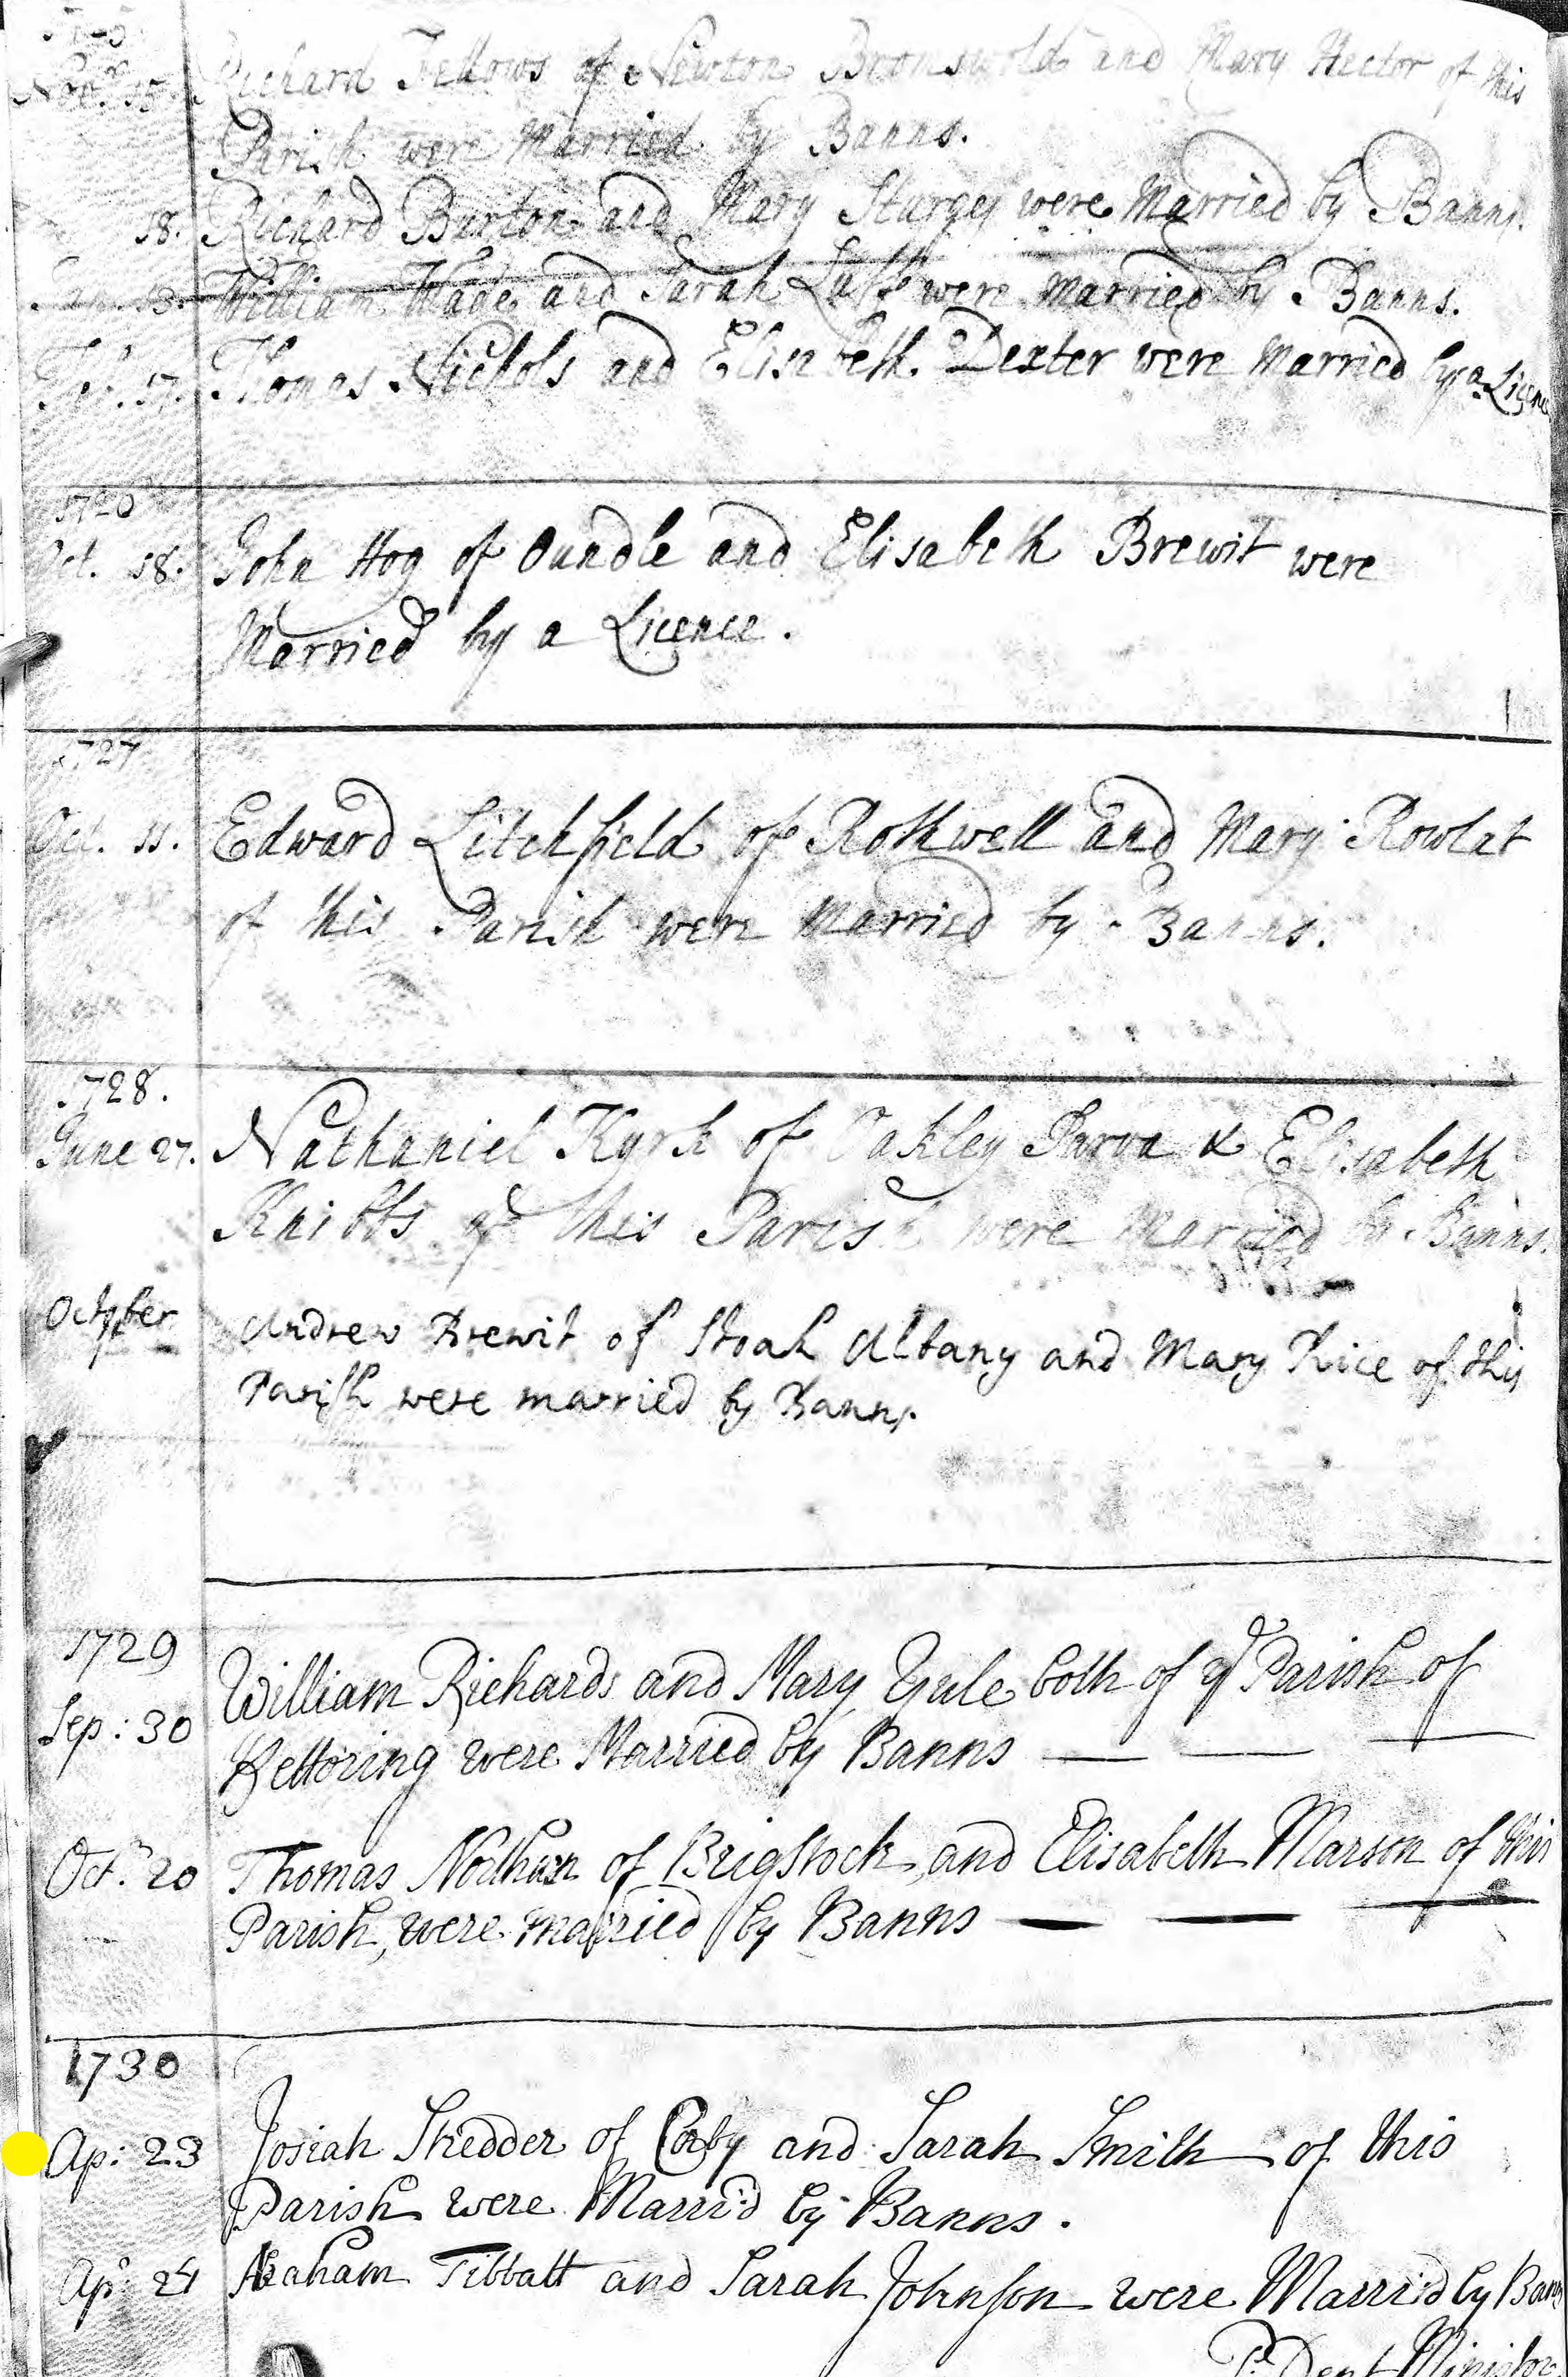 Nov. 15. Richard Fellows of Newton Bromswold and Mary Hector of this
Parish were Married by Banns.
18. Richard Burton and Mary Sturges were Married by Banns.
Jan. 13. William Wade and Sarah were Married by Banns.
Feb. 17. Thomas Nichols and Elisabeth Dexter were Married by a Licence
1726
Oct. 18. John Hog of Oundle and Elisabeth Brewit were
Married by a Licence.
1727
Oct. 11. Edward Litchfield of Rothwell and Mary Rowlat
of this Parish were Married by Banns.
1728.
June 27. Nathaniel Kyrk of Oakley Parva & Elisabeth
Knibbs of this Parish were Married by Banns.
October Andrew Brewit of Stoak Albany and Mary Rice of this
Parish were married by Banns.
1729
Sep: 30 William Richards and Mary Yule both of ye Parish of
Kettering were Married by Banns
Octr. 20 Thomas of Brigstock, and Elisabeth Marson of this
Parish, were married by Banns
1730
Ap: 23 Josiah Shedder of Corby and Sarah Smith of this
Parish were Marri'd by Banns.
Ap: 24 Abraham Tibbatt and Sarah Johnson were Marri'd by Banns
P. Dent Minister